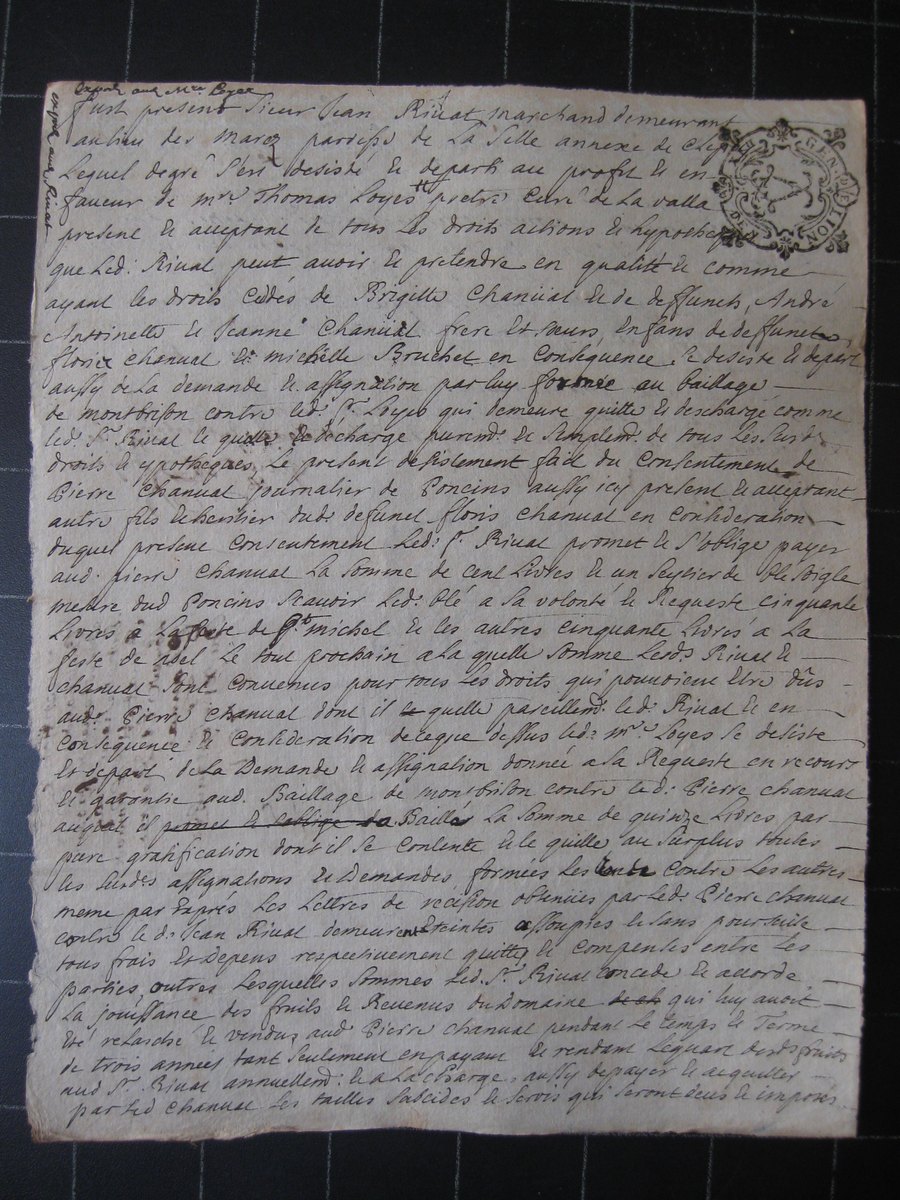 Expedié aud Mre Loyes
expedié aud Rival
fust present Sieur Jean Rival marchand demeurant
au lieu des Maroz parroisse de La Sille annexe de Clep
Lequel de gré s'en desisté & departi au profit & en
faveur de mre Thomas Loyes pretre Curé de La valla
present & acceptant de tous Les droits actions & hypotheques
que Led: Rival peut avoir & pretendre en qualité & comme
ayant les droits Cedés de Brigitte Chanual & de deffuncts André
Antoinette & Jeanne Chanual frere Et seurs, Enfans de deffunct
floris chanual & michelle Bruchet en Conséquence se desiste & depart
aussy de La demande & assignation par luy formée au baillage
de montbrison contre led. Sr. Loyes qui demeure quitte & deschargé comme
led. Sr. Rival le quitte & décharge puremt. & Simplemt. de tous Les Susds.
droits & ypotheques, Le present desistement fait du Consentement de
Pierre Chanual journalier de Poncins aussy icy present & acceptant
autre fils & heritier dud. defunct floris Chanual en Consideration
duquel present Consentement Led. Sr. Rival promet & s'oblige payer
aud. pierre Chanual La Somme de cent Livres & un Septier de blé Seigle
mesure dud Poncins Scavoir Led. blé a sa volonté & Requeste cinquante
Livres a La feste de St. michel & les autres Cinquante Livres a La
feste de noel Le tout prochain a La quelle Somme Lesds. Rival &
chanual Sont Convenus pour tous Les droits qui pouvoient Etre dûs
aud. Pierre Chanual dont il quitte pareillemt. led: Rival & en
Consequence & Consideration de ce que dessus led: mre. Loyes Se desiste
Et départ de La Demande & assignation donnée a La Requeste en recours
& garantie aud. Baillage de montbrison contre led. Pierre Chanual
auquel il promet & soblige Baillé La Somme de quinze Livres par
pure gratification dont il Se Contente & le quitte au Surplus toutes
les Susdes assignations & Demandes formées Les unes Contre Les autres
meme par Exprés Les Lettres de récision obtenües par led. Pierre Chanual
Contre le d. Jean Rival demeurent Eteintes assoupies & Sans poursuite
tous frais Et Depens respectivement quittés & Compensés entre Les
parties, outres Lesquelles Sommes Led. Sr. Rival concede & accorde
La jouissance des fruits & Revenus du Domaine qui luy avoit
Eté relasché & vendus aud Pierre Chanual pendant Le temps & Terme
de trois années tant Seulement en payant & rendant Lequart desds fruits
aud Sr. Rival annuellemt. & a La Charge aussy de payer & acquitter
par Led Chanual Les tailles Subcides & Servis qui Seront deus & imposés
GEN. DE LION